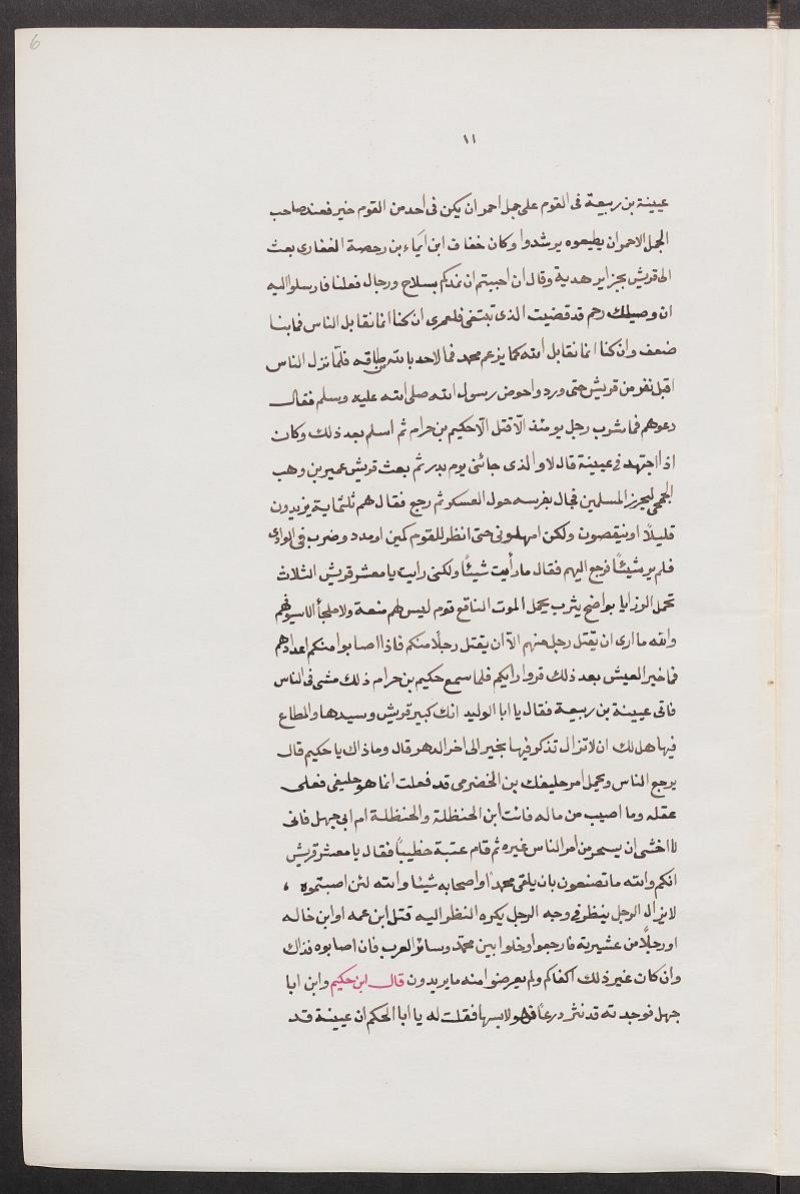 6
١١
عيينة بن ربيعة فى القوم على جمل احمر ان يكن فى احد من القوم خير فعند صاحب
الجمل الاحمر ان يطيعوه يرشدوا وكان خفاف ابن ايماء بن رحصة الغفارى بعث
الى قريش بجزاير هدية وقال ان احببتم ان نمدكم بسلاح ورجال فعلنا فارسلوا اليه
ان وصيلك رحم قد قضيت الذى تبتغى فلعمرى ان كنا انما نقابل الناس فما بنا
ضعف وان كنا انما نقابل الله كما يزعم محمد فما لاحد بالله من طاقه فلما نزل الناس
اقبل نفر من قريش حتى وردوا حوض رسول الله صلى الله عليه وسلم فقال
دعوهم فما شرب رجل يومئذ الّا قتل الّا حكيم بن حرام ثم اسلم بعد ذلك وكان
اذا اجتهد فى عيينة قال لا والذى جائنى يوم بدر ثم بعث قريش عمير بن وهب
الجمحى ليحرز المسلمين فجال بفرسه حول العسكر ثم رجع فقال هم ثلثماية يزيدون
قليلًا او ينقصون ولكن امهلونى حتى انظر للقوم كمين او مدد وضرب فى الوادى
فلم ير شيئًا فرجع اليهم فقال ما رأيت شيئًا ولكنى رايت يا معشر قريش الثلاث
تحمل الرزايا بواضح يثرب يحمل الموت الناقع قوم ليس لهم منعة ولا ملجأ الا سيوفهم
والله ما ارى ان يقتل رجل منهم الّا ان يقتل رجلًا منكم فاذا اصابوا منكم اعدادهم
فما خير العيش بعد ذلك فروا رايكم فلما سمع حكيم بن حرام ذلك مشى فى الناس
فاتى عيينة بن ربيعة فقال يا ابا الوليد انك كبير قريش وسيدها والمطاع
فيها هل لك ان لا تزال تذكر فيها بخير الى اخر الدهر قال وما ذاك يا حكيم قال
يرجع الناس وتحمل امر حليفك بن الخضرمى قد فعلت انما هو حليفى فعلى
عقله وما اصيب من ماله فائت ابن الحنظلة والحنظلة ام ابى جهل فانى
لا اخشى ان يسحر من امر الناس غيره ثم قام عتبة خطيبًا فقال يا معشر قريش
انكم والله ما تصنعون بان يلقى محمدًا واصحابه شيئا والله لئن اصبتموه ،
لا يزال الرجل ينظر فى وجه الرجل يكره النظر اليه قتل ابن عمه او ابن خاله
او رجلًا من عشيرته فارجعوا وخلوا بين محمّد وسائر العرب فان اصابوه فذاك
وان كان غير ذلك اكفاكم ولم يعرضوا منه ما يريدون قال ابن حكيم وابن ابا
جهل فوجدته قد نثر درعًا فهو لابسها فقلت له يا ابا الحكم ان عيينة قد